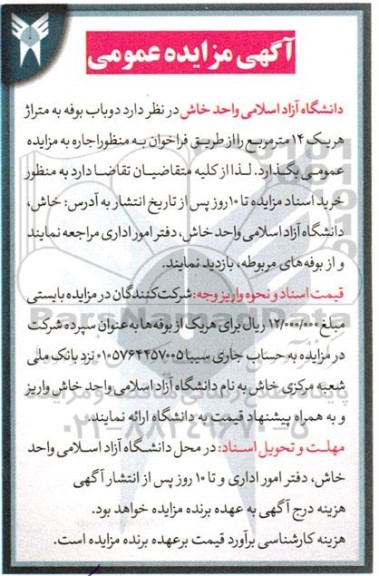 آگهی مزایده عمومی
دانشگاه آزاد اسلامی واحد خاش در نظر دارد دو باب بوفه به متراژ
هر یک ۱۴ مترمربع را از طریق فراخوان به منظور اجاره به مزایده
عمومی بگذارد. لذا از کلیه متقاضیان تقاضا دارد به منظور
خرید اسناد مزایده تا ۱۰ روز پس از تاریخ انتشار به آدرس: خاش،
دانشگاه آزاد اسلامی واحد خاش، دفتر امور اداری مراجعه نمایند
و از بوفه‌های مربوطه، بازدید نمایند.
قیمت اسناد و نحوه واریز وجه: شرکت‌کنندگان در مزایده بایستی
مبلغ ۱۲/۰۰۰/۰۰۰ ریال برای هر یک از بوفه‌ها به عنوان سپرده شرکت
در مزایده به حساب جاری سیبا ۰۱۰۵۷۶۴۴۵۷۰۰۵ نزد بانک ملی
شعبه مرکزی خاش به نام دانشگاه آزاد اسلامی واحد خاش واریز
و به همراه پیشنهاد قیمت به دانشگاه ارائه نمایند.
مهلت و تحویل اسناد: در محل دانشگاه آزاد اسلامی واحد
خاش، دفتر امور اداری و تا ۱۰ روز پس از انتشار آگهی
هزینه درج آگهی به عهده برنده مزایده خواهد بود.
هزینه کارشناسی برآورد قیمت بر عهده برنده مزایده است.
ParsNamadData